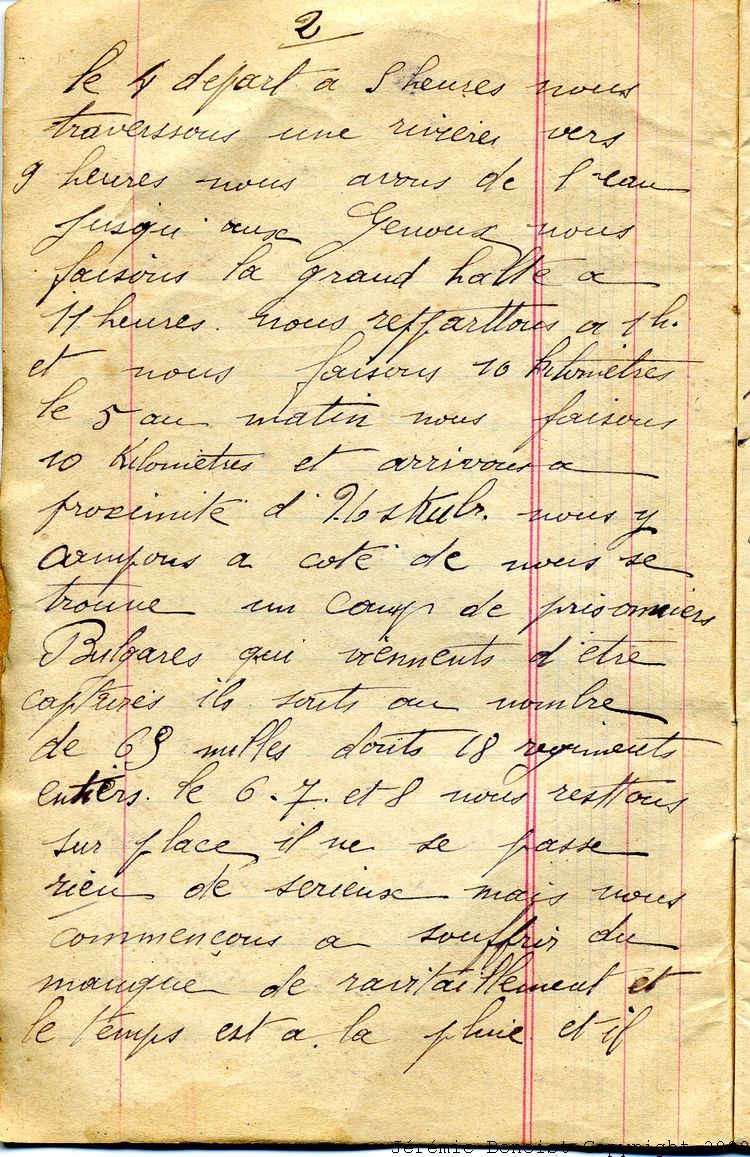 2
le 4 depart a 8 heures nous
traverssons une rivieres vers
9 heures nous avons de l'eau
Jusqu'aux Genoux nous
faisons la grand halte a
11 heures. nous repparttons a 1 h.
et nous faisons 10 kilometres
le 5 au matin nous faisons
10 Kilometres et arrivons a
proximité d' nous y
campons a coté de nous se
trouve un camp de prisonniers
Bulgares qui viennents d'etre
capturés ils sonts au nombre
de 63 milles donts 18 regiments
entiers. le 6. 7. et 8 nous resttons
sur place il ne se passe
rien de serieux mais nous
commençons a souffrir du
manque de ravitaillement et
le temps est a la pluie et il
Jérémie Benoist Copyright